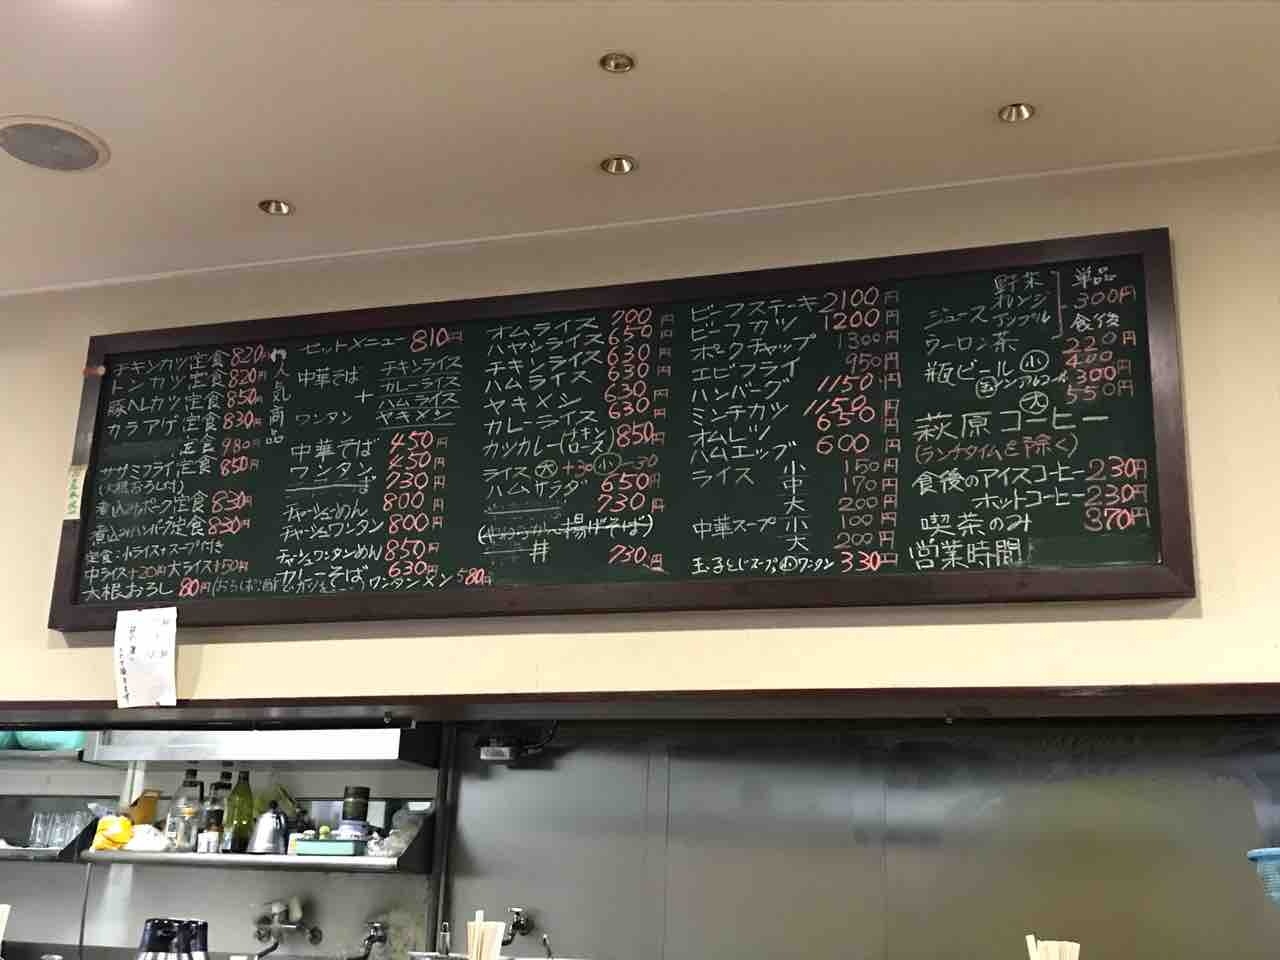 チキンカツ定食 820円
トンカツ定食 820円
豚ヘレカツ定食 850円
カラアゲ定食 830円
定食 980円
ササミフライ定食 850円
(大根おろし付)
煮込みポーク定食 830円
煮込みハンバーグ定食 830円
定食:小ライス+スープ付き
中ライス+30円 大ライス+50円
大根おろし 80円
人気商品
セットメニュー 810円
中華そば
ワンタン
+
チキンライス
カレーライス
ハムライス
ヤキメシ
中華そば 450円
ワンタン 450円
730円
チャシューめん 800円
チャシュワンタン 800円
チャシュワンタンめん 850円
カレーそば 630円
ワンタンメン 580円
オムライス 700円
ハヤシライス 650円
チキンライス 630円
ハムライス 630円
ヤキメシ 630円
カレーライス 630円
カツカレー(チキン ロース) 850円
ライス 大 +30 小 -30
ハムサラダ 650円
730円
揚げそば)
丼 730円
ビーフステーキ 2100円
ビーフカツ 1200円
ポークチャップ 1300円
エビフライ 950円
ハンバーグ 1150円
ミンチカツ 1150円
オムレツ 650円
ハムエッグ 600円
ライス 小 150円
中 170円
大 200円
中華スープ 小 100円
大 200円
玉子とじスープ 小ワンタン 330円
ジュース 野菜 オレンジ アップル
単品 300円
食後 220円
ウーロン茶
瓶ビール 小 400
ノンアルコール 300円
大 550円
萩原コーヒー
(ランチタイムを除く)
食後のアイスコーヒー 230円
ホットコーヒー 230円
喫茶のみ 370円
営業時間